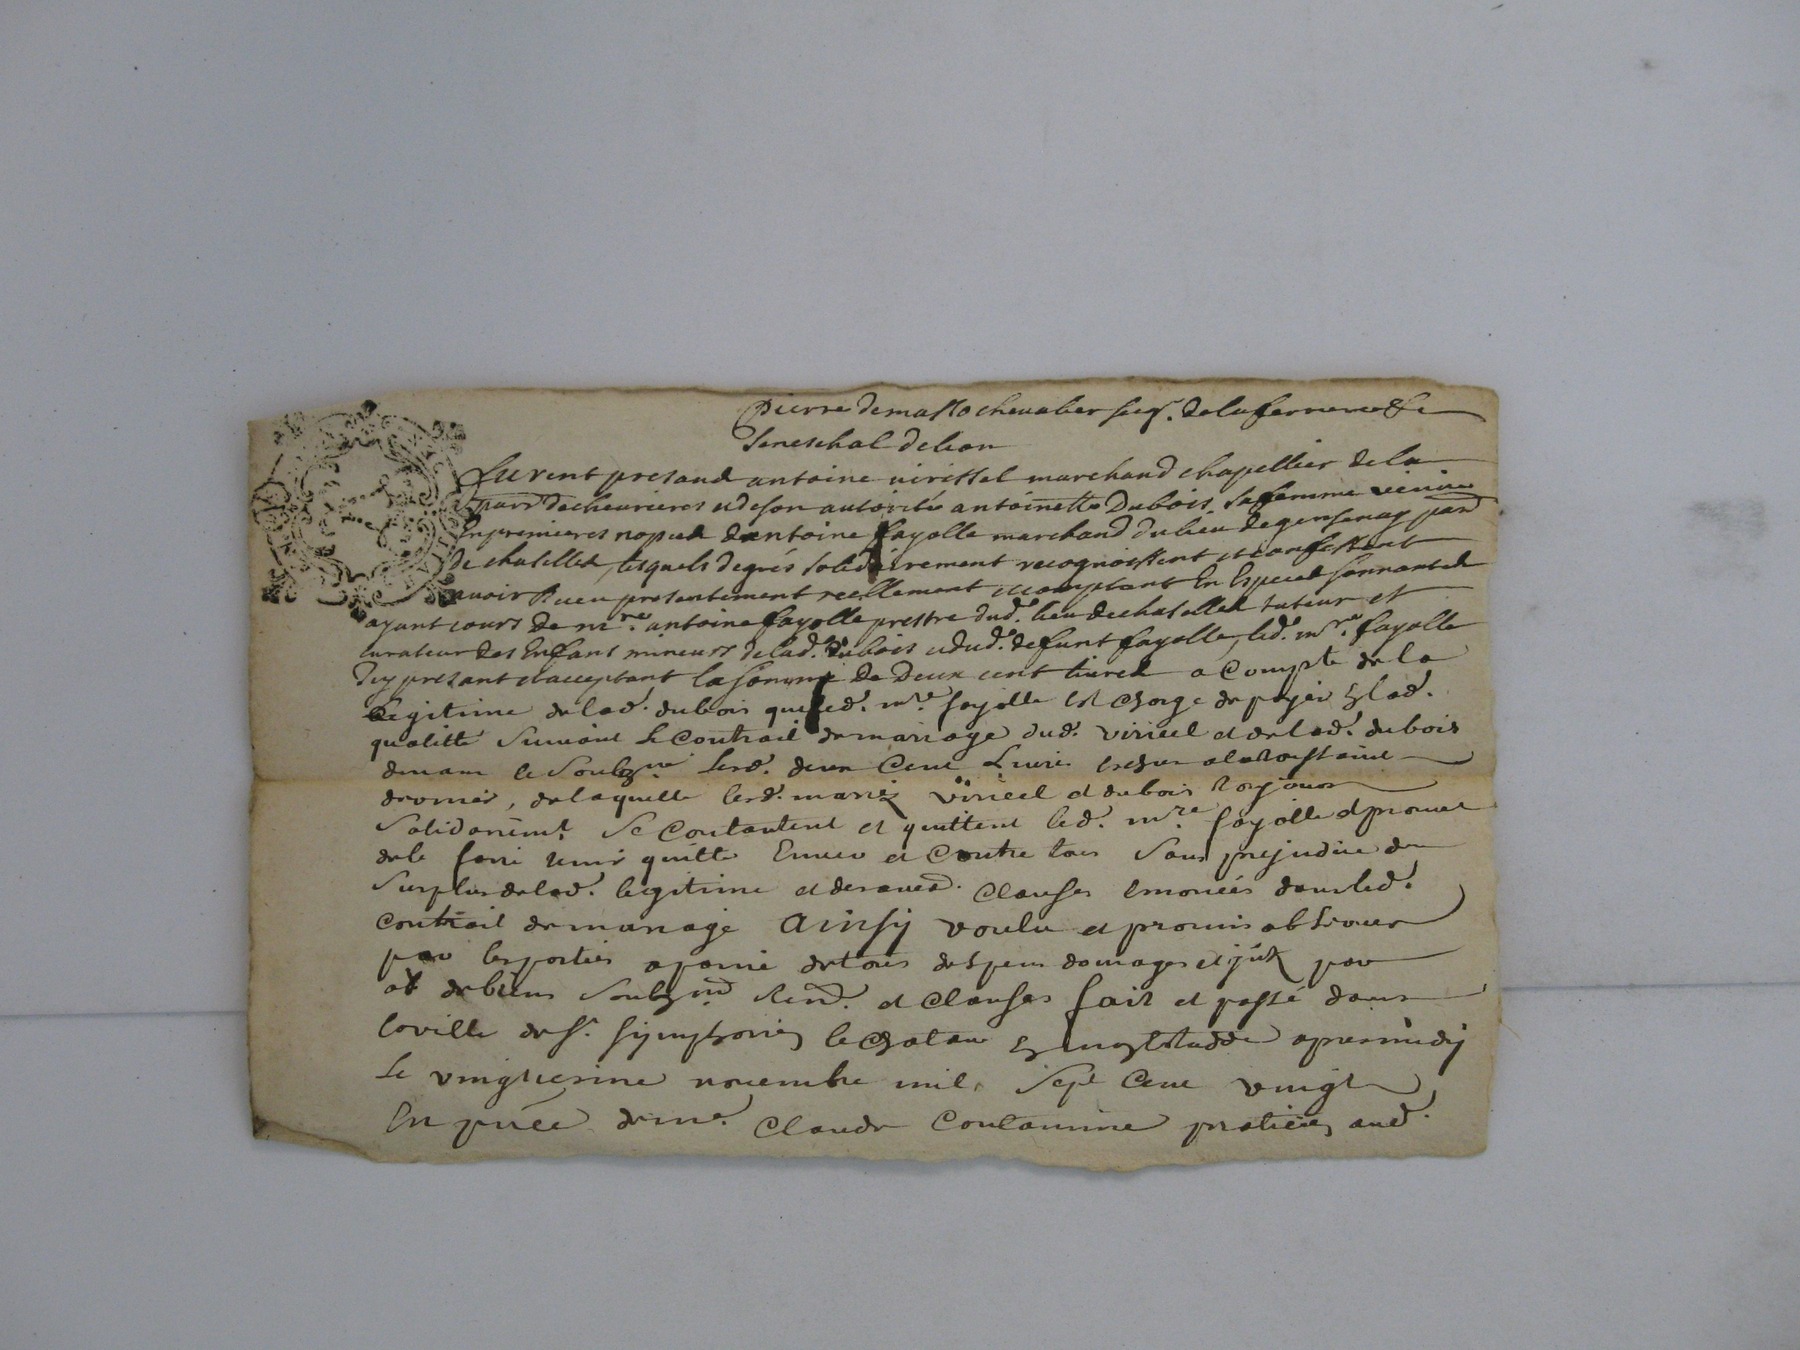 Pierre demasso chevalier seigr. delaferriere &c
seneschal delion
Furent presand antoine viricel marchand chapellier dela
parr decheurieres et deson autorité antoinette Dubois Safemme veuve
En premieres nopces dantoine fayolle marchand dulieu de parr
de chatellus, lesquels degrés solidairement recognoissent et confessent
avoir Receu presentement reellement et comptant En Especes sonnantes
ayant cours de mre. antoine fayolle prestre dud. lieu dechatellus tuteur et
curateur des Enfans mineurs delad. dubois et dud. defunt fayolle, led. mre. fayolle
Icy presant et acceptant la somme de Deux cent livres a Compte de la
Legitime de lad. dubois que led. mre. fayolle est charge de payer En lad.
qualitté suivant le Contrait de mariage dud. viricel et de lad. dubois
devant le Soubzne lesd. deux Cent Livres
, de laquelle lesd. mariez viricel et dubois Toujours
Solidairemt. Se Contantent et quittent led. mre. fayolle et promet
de le faire tenir quitte Envers et Contre tous Sans prejudice du
Surplus de lad. legitime et des aued. Clauses Enoncées dans led.
contrait de mariage Ainsy voulu et promis observer
par les parties a peine de tous despens domages et par
et de biens Soubz Renon. et Clauses fait et passé dans
la ville de St. Symphorien le Chatau apresmidy
Le vingtiesme novembre mil Sept Cent vingt
En pnce de me. Claude Contamine praticien aud.